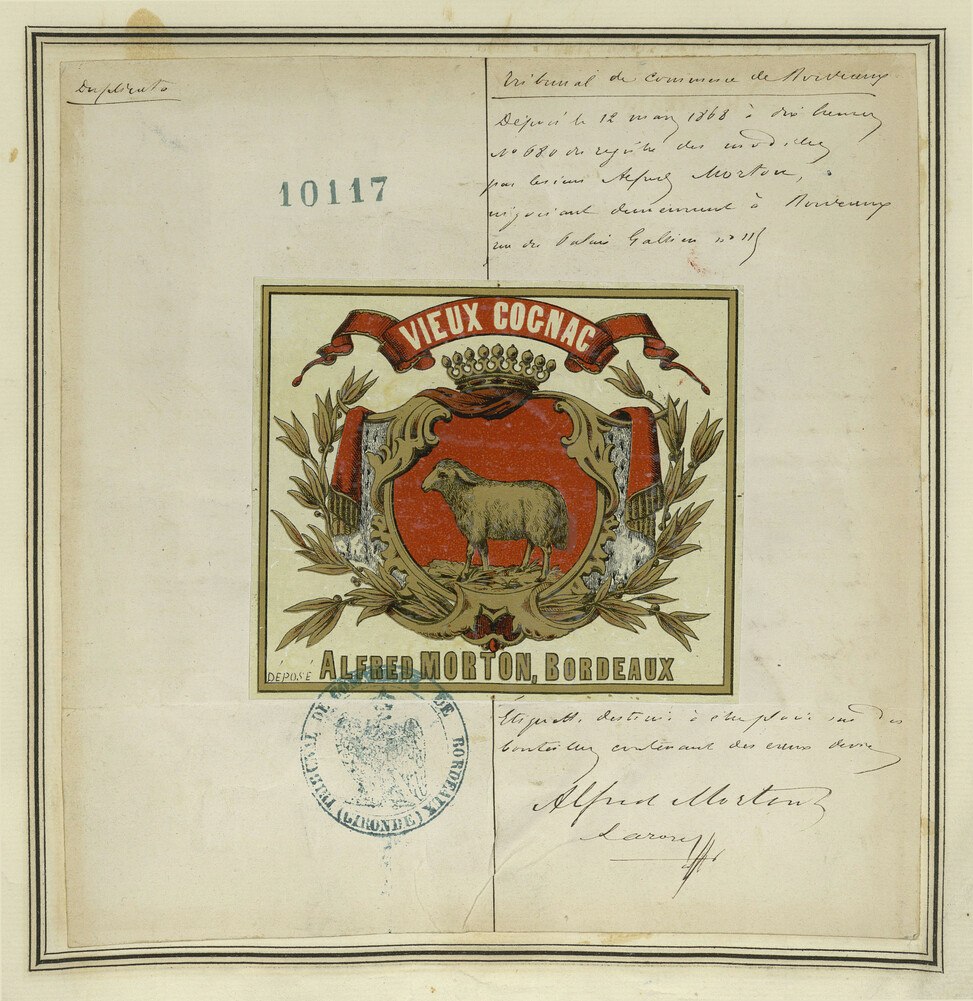 Duplicata
Tribunal de commerce de Bordeaux
Déposé le 12 mars 1868 à dix heures
No 680 du registre des modèles
par le sieur Alfred Morton,
négociant demeurant à Bordeaux
rue du Palais Gallien no 115
10117
VIEUX COGNAC
ALFRED MORTON, BORDEAUX
DÉPOSÉ
TRIBUNAL DE COMMERCE DE BORDEAUX
(GIRONDE)
Etiquette destinée à être placée sur des
bouteilles contenant des eaux de vie
Alfred Morton